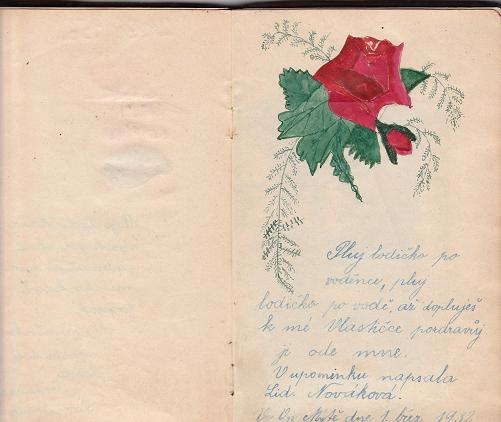 Pluj lodičko po
voděnce, pluj
lodičko po vodě, až dopluješ
k mé Vlastičce pozdravůj
ji ode mne.
V upomínku napsala
Lid. Nováková.
Mýtě dne 1. břez. 1932